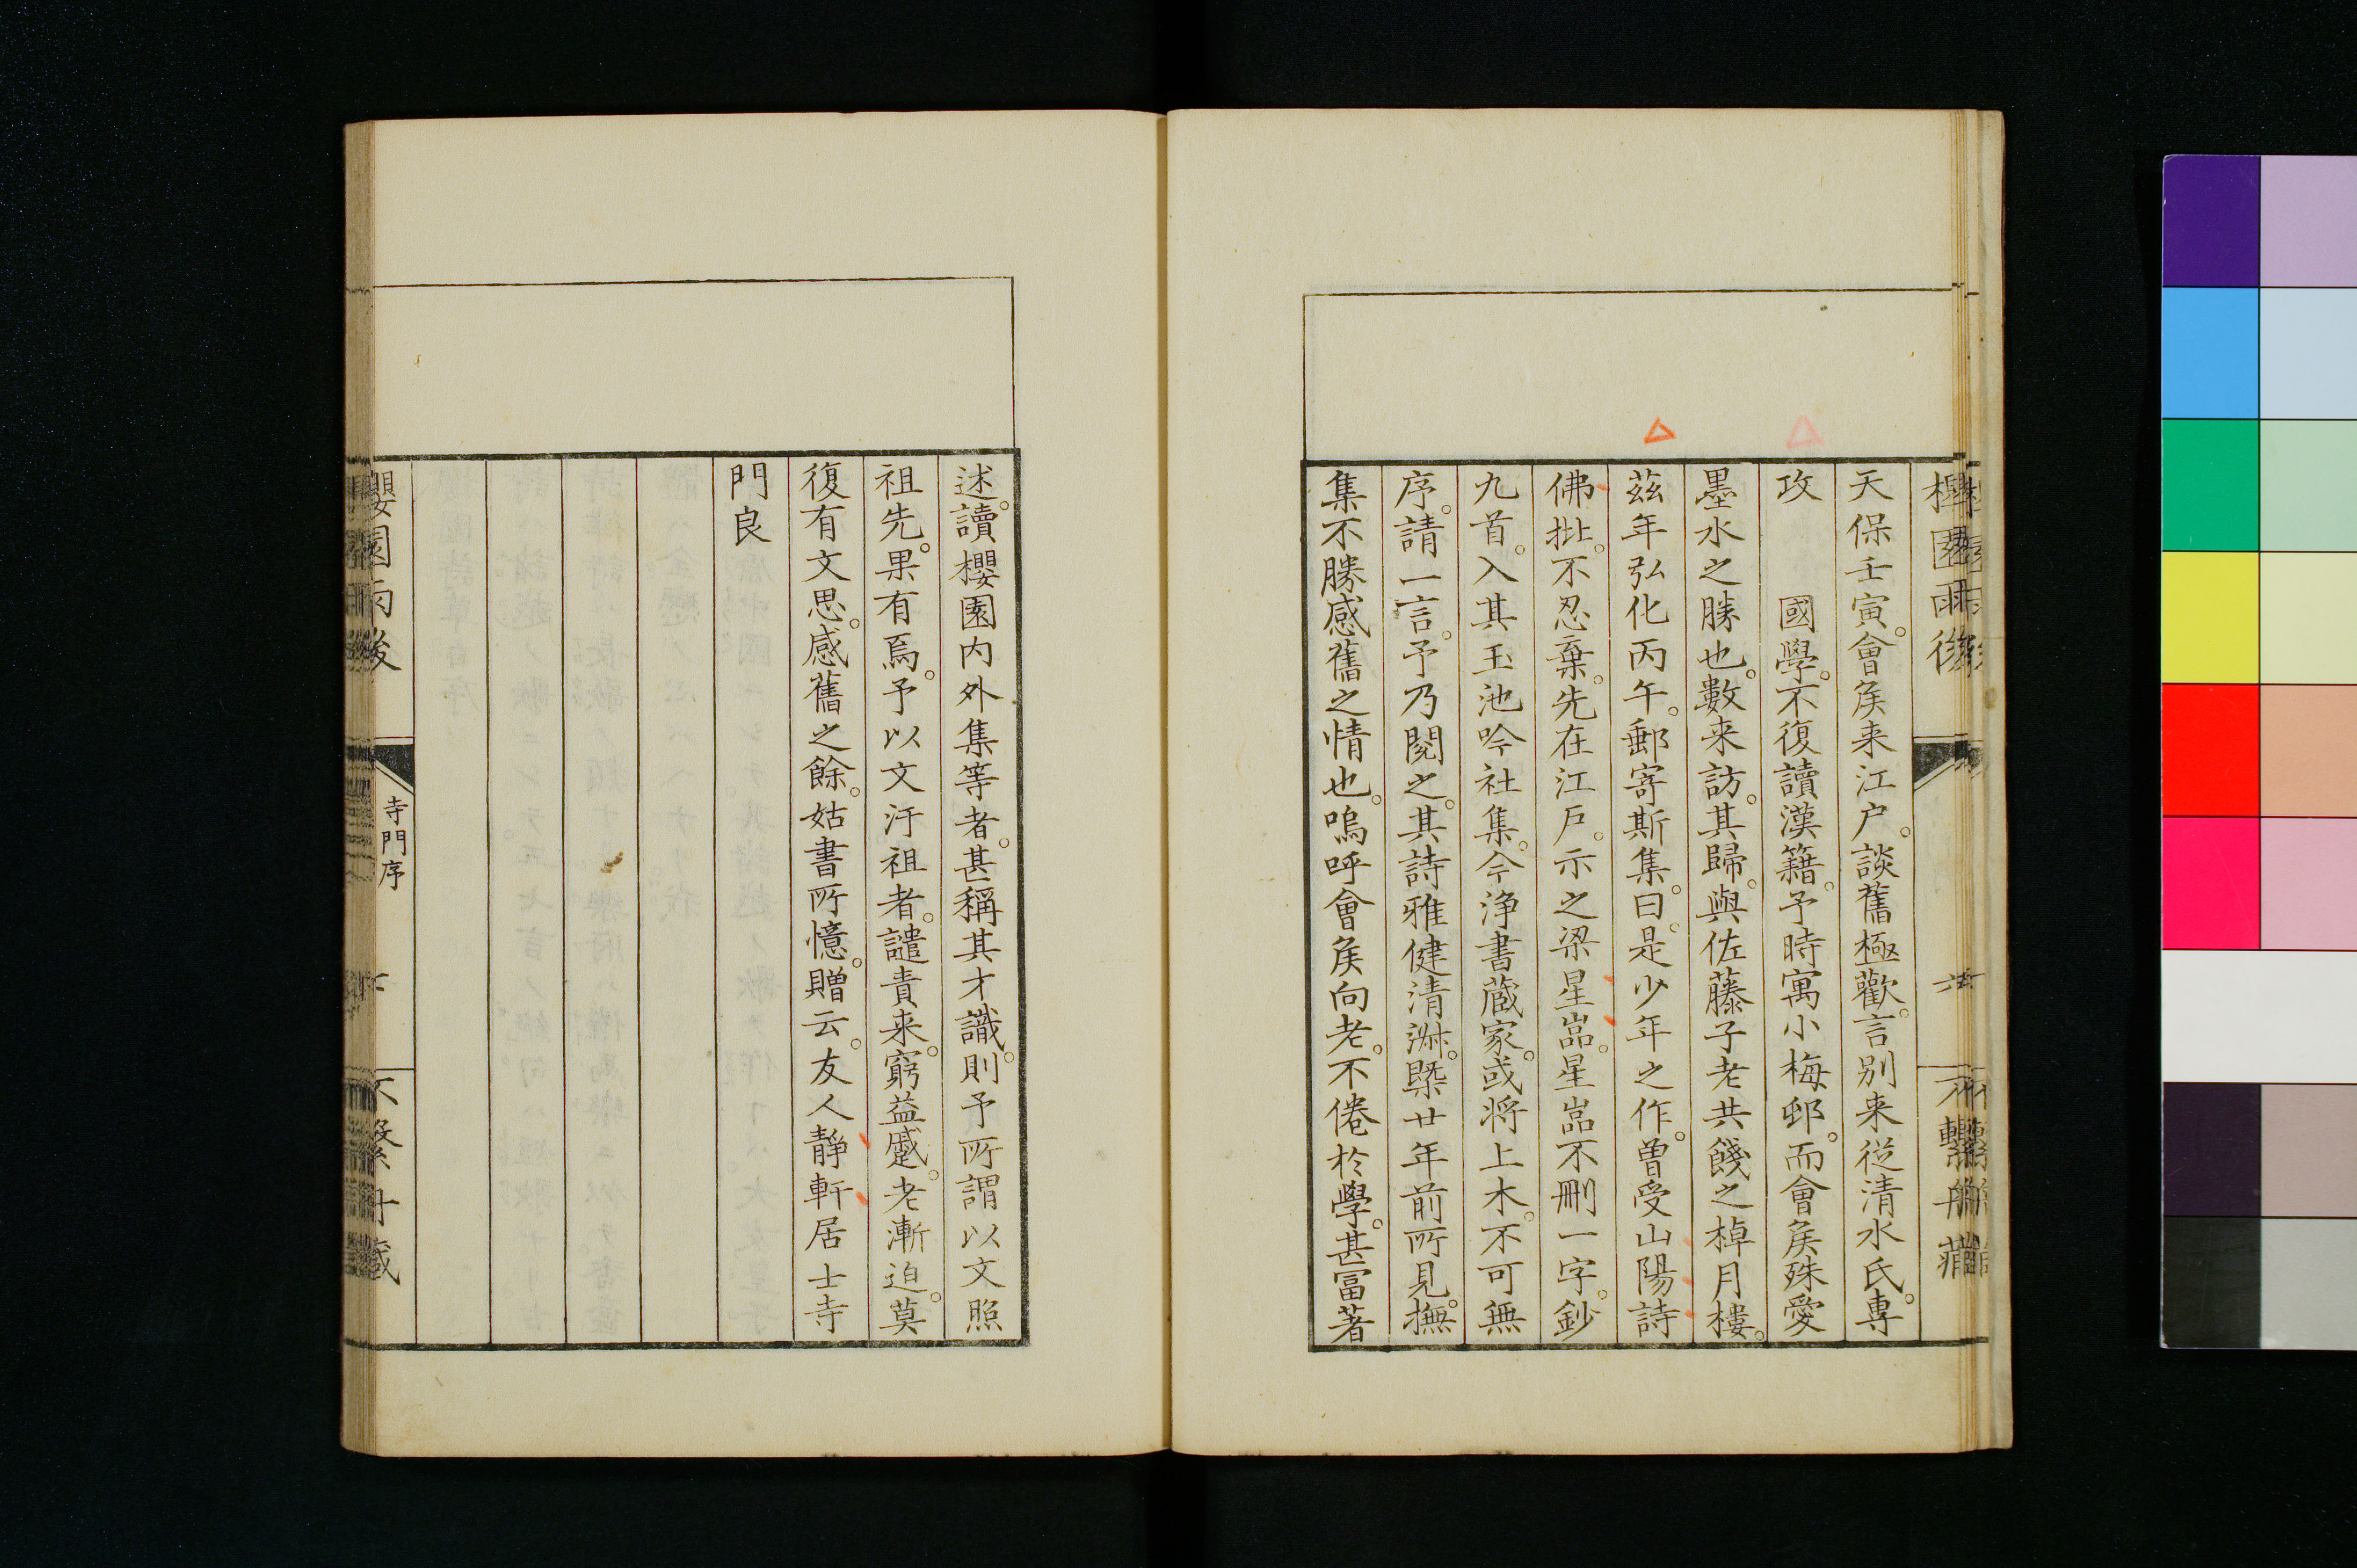 天保壬寅。會矦来江户。談舊極歡。言别来従清水氏。專
攻　　國學。不復讀漢籍。予時寓小梅邨。而會矦殊愛
墨水之勝也。數来訪。其歸。與佐藤子老共餞之棹月樓。
茲年弘化丙午。郵寄斯集。曰。是少年之作。曽受山陽詩
佛批。不忍棄。先在江戸。示之梁星嵓。星嵓不刪一字。鈔
九首。入其玉池吟社集。今浄書蔵家。或将上木。不可無
序。請一言。予乃閲之。其詩雅健清淋。槩廿年前所見。撫
集不勝感舊之情也。嗚呼會矦向老。不倦於學。甚富著
述。讀櫻園内外集等者。甚稱其才識。則予所謂以文照
祖先。果有焉。予以文汙祖者。譴責来。窮益蹙。老漸迫。莫
復有文思。感舊之餘。姑書所憶。贈云。友人靜軒居士寺
門良
寺門序